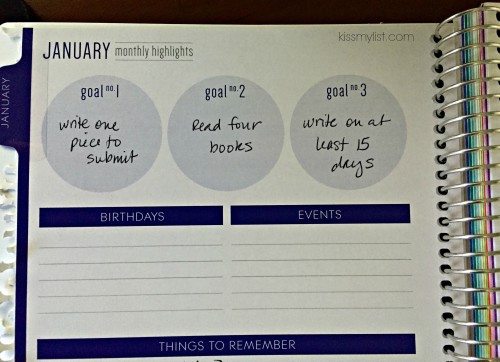 kissmylist.com
JANUARY monthly highlights
JANUARY
goal no. 1
write one
piece to
submit
goal no. 2
Read four
books
goal no. 3
write on at
least 15
days
BIRTHDAYS
EVENTS
THINGS TO REMEMBER